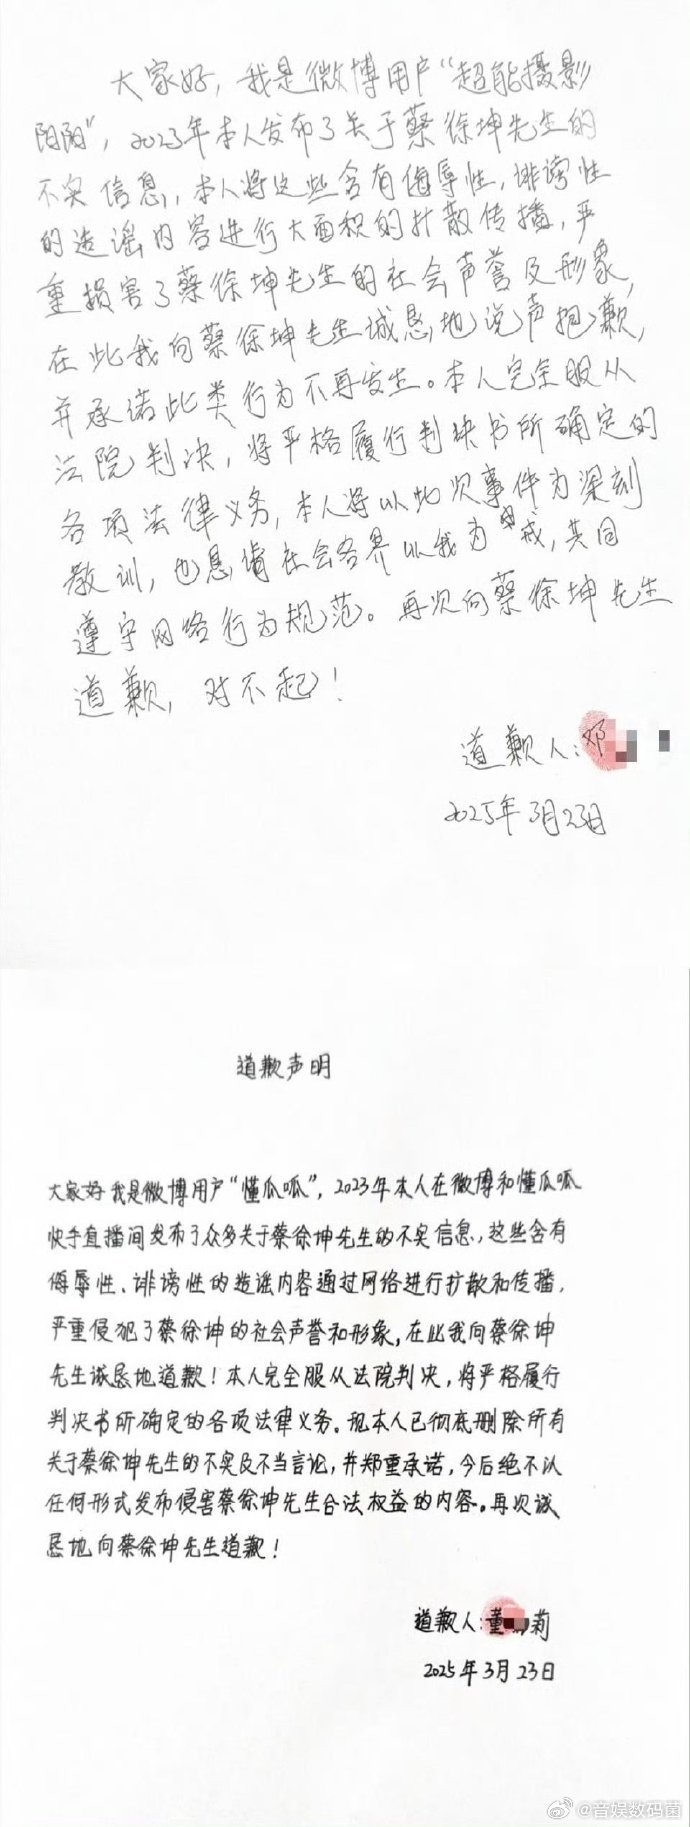 大家好，我是微博用户“超能摄影
阳阳”，2023年本人发布了关于蔡徐坤先生的
不实信息，本人将这些含有侮辱性，诽谤性
的造谣内容进行大面积的扩散传播，严
重损害了蔡徐坤先生的社会声誉及形象，
在此我向蔡徐坤先生诚恳地说声抱歉，
并承诺此类行为不再发生。本人完全服从
法院判决，将严格履行判决书所确定的
各项法律义务，本人将以此次事件为深刻
教训，也恳请社会各界以我为戒，共同
遵守网络行为规范。再次向蔡徐坤先生
道歉，对不起！
道歉人：邓
2025年3月23日
道歉声明
大家好我是微博用户“懂瓜呱”，2023年本人在微博和懂瓜呱
快手直播间发布了众多关于蔡徐坤先生的不实信息，这些含有
侮辱性、诽谤性的造谣内容通过网络进行扩散和传播，
严重侵犯了蔡徐坤的社会声誉和形象，在此我向蔡徐坤
先生诚恳地道歉！本人完全服从法院判决，将严格履行
判决书所确定的各项法律义务。现本人已彻底删除所有
关于蔡徐坤先生的不实及不当言论，并郑重承诺，今后绝不以
任何形式发布侵害蔡徐坤先生合法权益的内容。再次诚
恳地向蔡徐坤先生道歉！
道歉人：董莉
2025年3月23日
@音娱数码菌